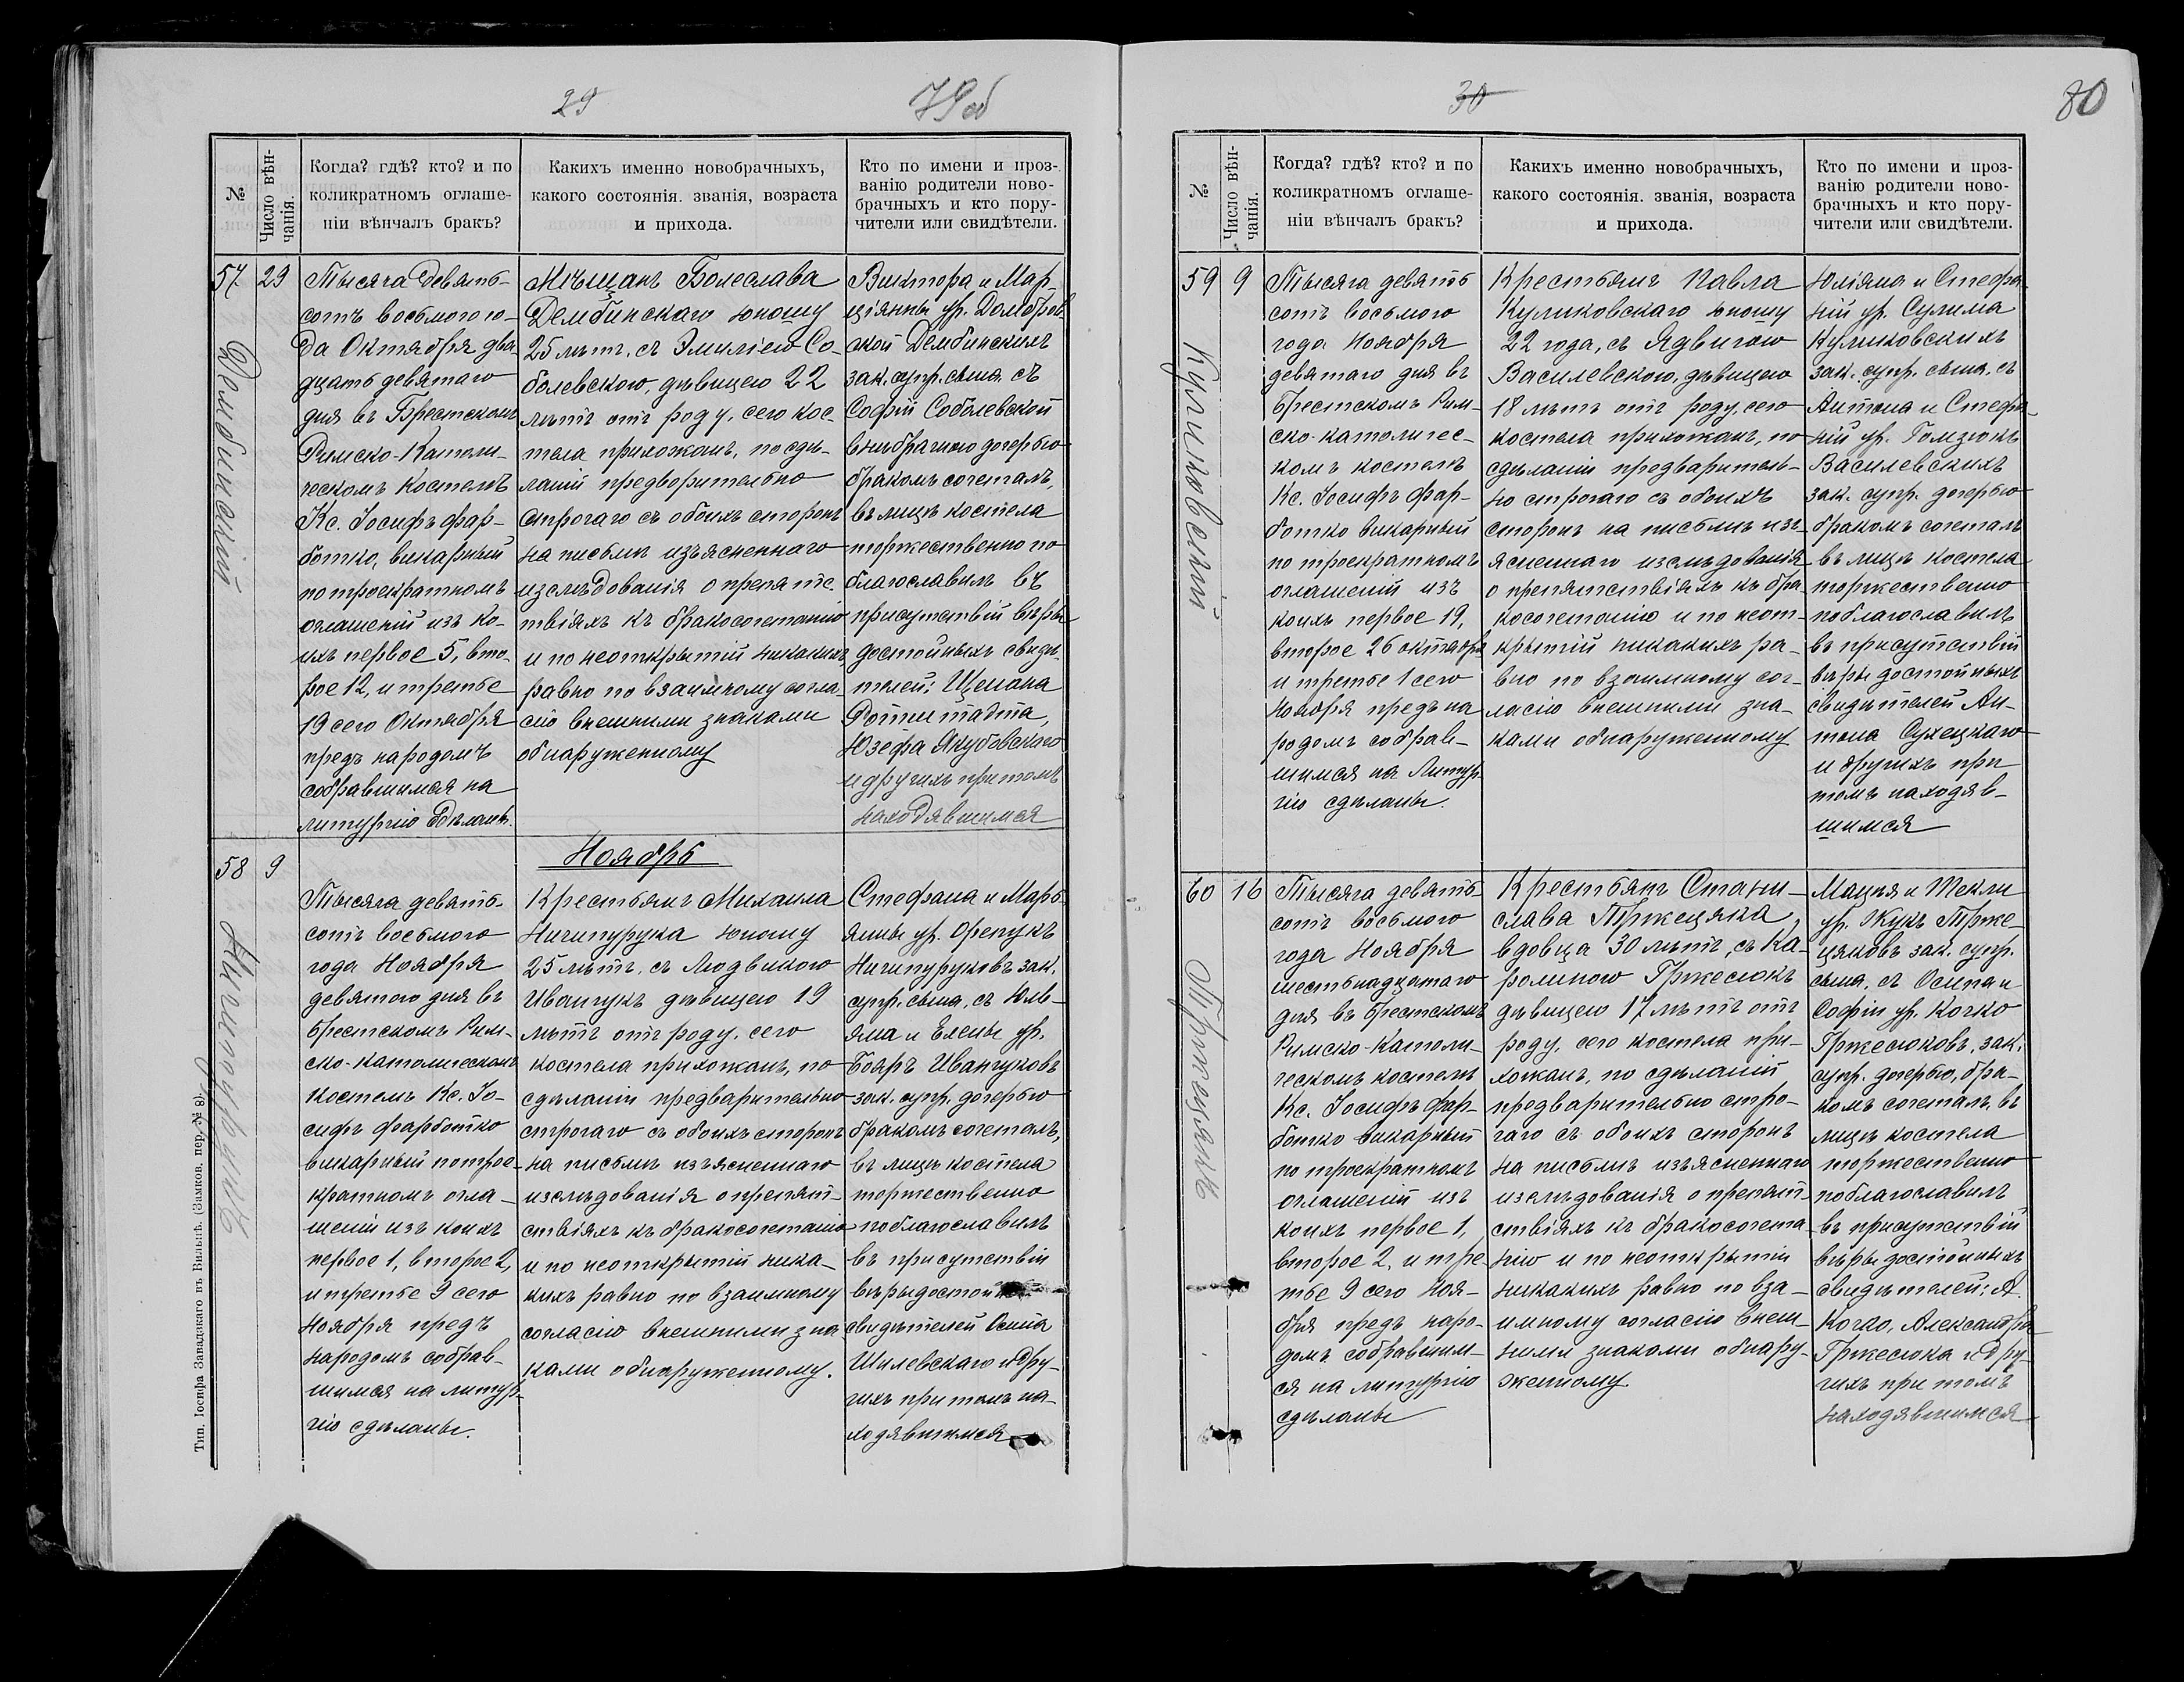 29
79об
№
Число вѣн-
чанія.
Когда? гдѣ? кто? и по
коликратномъ оглаше-
ніи вѣнчалъ бракъ?
Какихъ именно новобрачныхъ,
какого состоянія. званія, возраста
и прихода.
Кто по имени и проз-
ванію родители ново-
брачныхъ и кто пору-
чители или свидѣтели.
57
29
Дембинскій
Тысяча девять-
сотъ восьмого го-
да Октября два-
дцать девятаго
дня въ Брестскомъ
Римско-Католи-
ческомъ Костелѣ
Кс. Іосифъ Фар-
ботко, викарный
по троекратномъ
оглашеніи изъ ко-
ихъ первое 5, вто-
рое 12, и третье
19 сего Октября
предъ народомъ
собравшимся на
литургію сдѣланы.
Мѣщанъ Болеслава
Дембинскаго юношу
25 лѣтъ, съ Эмиліею Со-
болевскою, дѣвицею 22
лѣтъ отъ роду, сего кос-
тела прихожанъ, по сдѣ-
ланіи предворительно
строгаго съ обоихъ сторонъ
на письмѣ изъясненнаго
изслѣдованія о препятс-
твіяхъ къ бракосочетанію
и по неоткрытіи никакихъ
равно по взаимному согла-
сію внешними знаками
обнаруженному
Виктора и Мар-
ціянны ур. Домбров
ской Дембинскихъ
зак. супр. сына, съ
Софіи Соболевской
внѣбрачною дочерью
бракомъ сочеталъ,
въ лицѣ костела
торжественно по
благославилъ въ
присутствіи вѣры
достойныхъ свидѣ-
телей: Щепана
Ротштадта,
Юзефа Якубовскаго
и другихъ при томъ
находявшимся
58
9
Ничипурукъ
Ноябрь
Тысяча девять-
сотъ восьмого
года Ноября
девятого дня въ
Брестскомъ Рим-
ско-католическомъ
Костелѣ Кс. Іо-
сифъ Фарботко
викарный по трое-
кратномъ огла-
шеніи изъ коихъ
первое 1, второе 2,
и третье 9 сего
Ноября предъ
народомъ собрав-
шимся на литур-
гію сдѣланы.
Крестьянъ Михаила
Ничипурука юношу
25 лѣтъ, съ Людвикою
Иванчукъ дѣвицею 19
лѣтъ отъ роду, сего
костела прихожанъ, по
сдѣланіи предварительно
строгаго съ обоихъ сторонъ
на письмѣ изъясненнаго
изслѣдованія о препят-
ствіяхъ къ бракосочетанію
и по неоткрытіи ника-
кихъ равно по взаимному
согласію внешними зна
ками обнаруженному.
Стефана и Марь-
янны ур. Орепукъ
Ничипуруковъ зак.
супр. сына, съ Юль-
яна и Елены ур.
Бояръ Иванчуковъ
зак. супр. дочерью
бракомъ сочеталъ,
въ лицѣ костела
торжественно
поблагославилъ
въ присутствіи
вѣры
свидѣтелей Осипа
Шилевскаго и дру-
гихъ при томъ на-
ходявшимся
Тип. Іосифа Завадзкаго въ Вильнѣ. (Замков. пер. № 8).
30
80
№
Число вѣн-
чанія.
Когда? гдѣ? кто? и по
коликратномъ оглаше-
ніи вѣнчалъ бракъ?
Какихъ именно новобрачныхъ,
какого состоянія. званія, возраста
и прихода.
Кто по имени и проз-
ванію родители ново-
брачныхъ и кто пору-
чители или свидѣтели.
59
9
Куликовскій
Тысяча девять
сотъ восьмого
года Ноября
девятаго дня въ
Брестскомъ Рим-
ско-католичес-
комъ костелѣ
Кс. Іосифъ Фар-
ботко викарный
по троекратномъ
оглашеніи изъ
коихъ первое 19,
второе 26 октября
и третье 1 сего
Ноября предъ на
родомъ собрав-
шимся на Литур-
гію сдѣланы.
Крестьянъ Павла
Куликовскаго юношу
22 года, съ Ядвигою
Василевскою, дѣвицею
18 лѣтъ отъ роду, сего
костела прихожанъ, по
сдѣланіи предваритель-
но строгаго съ обоихъ
сторонъ на письмѣ изъ-
ясненнаго изслѣдованія
о препятствіяхъ къ бра-
косочетанію и по неот-
крытіи никакихъ ра-
вно по взаимному сог-
ласію внешними зна-
ками обнаруженному
Юліяна и Стефа-
ніи ур. Сулима
Куликовскихъ
зак. супр. сына, съ
Антона и Стефа-
ніи ур. Гомзюкъ
Василевскихъ
зак. супр. дочерью
бракомъ сочеталъ
въ лицѣ костела
торжественно
поблагославилъ
въ присутствіи
вѣры достойныхъ
свидѣтелей Ан-
тона Сухецкаго
и другихъ при
томъ находяв-
шимся
60
16
Пржецякъ
Тысяча девять-
сотъ восьмого
года Ноября
шестьнадцатаго
дня въ Брестскомъ
Римско-Католи-
ческомъ костелѣ
Кс. Іосифъ Фар-
ботко викарный
по троекратномъ
оглашеніи изъ
коихъ первое 1,
второе 2, и тре-
тье 9 сего Ноя-
бря предъ наро-
домъ собравшим-
ся на литургію
сдѣланы
Крестьянъ Стани-
слава Пржецяка,
вдовца 30 лѣтъ, съ Ка-
ролиною Гржесюкъ
дѣвицею 17 лѣтъ отъ
роду, сего костела при-
хожанъ, по сдѣланіи
предварительно стро-
гаго съ обоихъ сторонъ
на письмѣ изъясненнаго
изслѣдованія о препят-
ствіяхъ къ бракосочета-
нію и по неоткрытіи
никакихъ равно по вза-
имному согласію внеш-
ними знаками обнару-
женному
Мацея и Текли
ур. Жукъ Прже-
цяковъ зак. супр.
сына, съ Осипа и
Софіи ур. Кочко
Гржесюковъ, зак.
супр. дочерью, бра-
комъ сочеталъ, въ
лицѣ костела
торжественно
поблагославилъ
въ присутствіи
вѣры достойныхъ
свидѣтелей: А.
Кочко, Александра
Гржесюка и дру-
гихъ при томъ
находявшимся